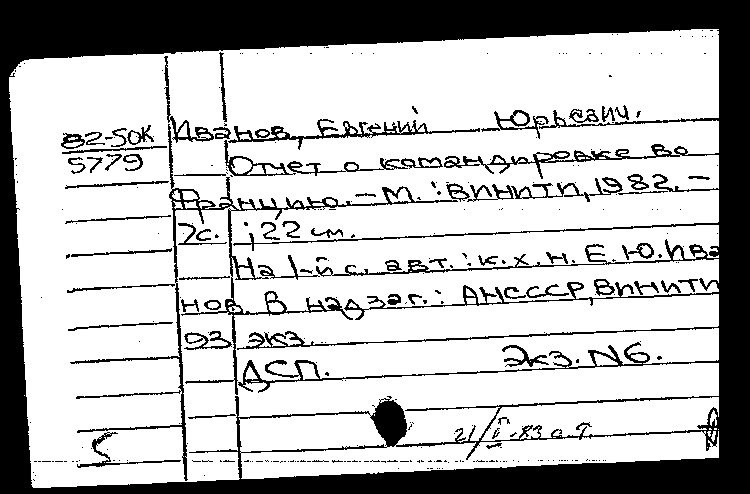 82-50К Иванов, Евгений Юрьевич.
5779 Отчет о командировке во
Францию. — М. : ВИНИТИ, 1982. —
7с. ; 22 см.
На 1-й с. авт. : к. х. н. Е. Ю. Ива
нов. В надзаг. : АНСССР, ВИНИТИ
93 экз.
ДСП. Экз. N6.
5 21/II-83